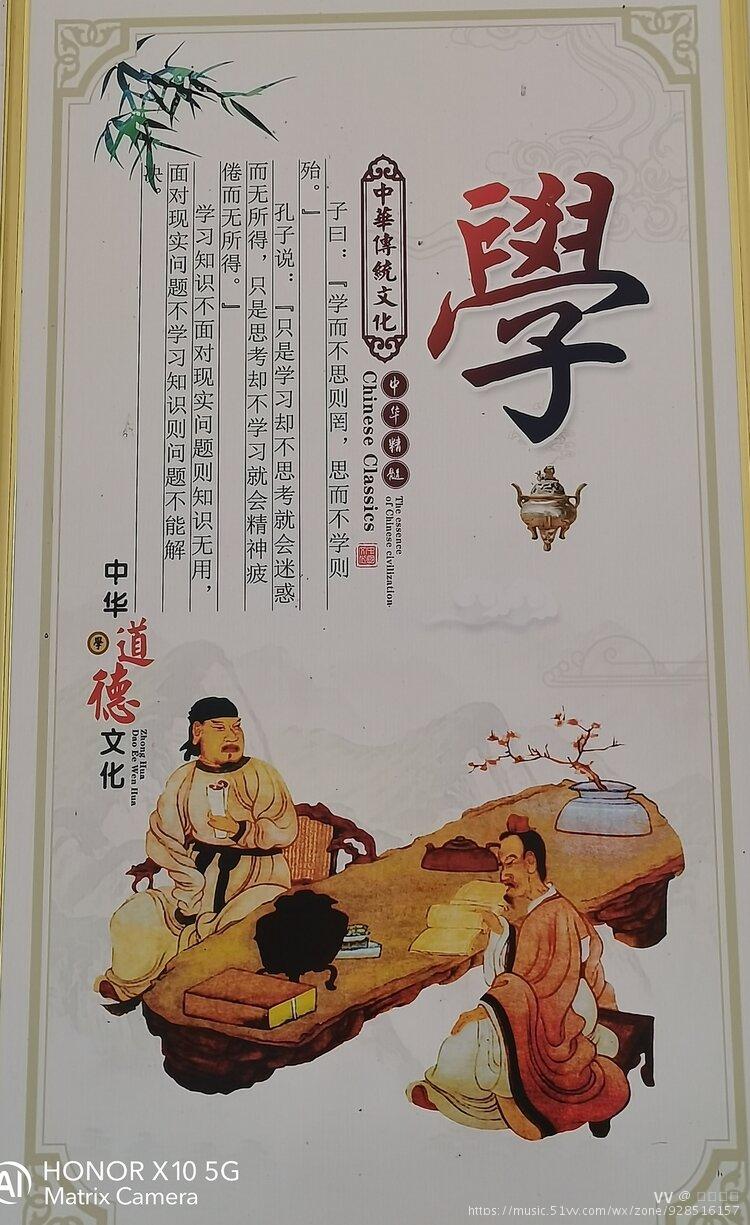 學
中華傳統文化
中华精髓
Chinese Classics
The essence
of Chinese civilization
子曰：『学而不思则罔，思而不学则
殆。』
孔子说：『只是学习却不思考就会迷惑
而无所得，只是思考却不学习就会精神疲
倦而无所得。』
学习知识不面对现实问题则知识无用，
面对现实问题不学习知识则问题不能解
决。
中华
學
道德
文化
Zhong Hua
Dao Ee Wen Hua
HONOR X10 5G
Matrix Camera
VV @
https://music.51vv.com/wx/zone/928516157